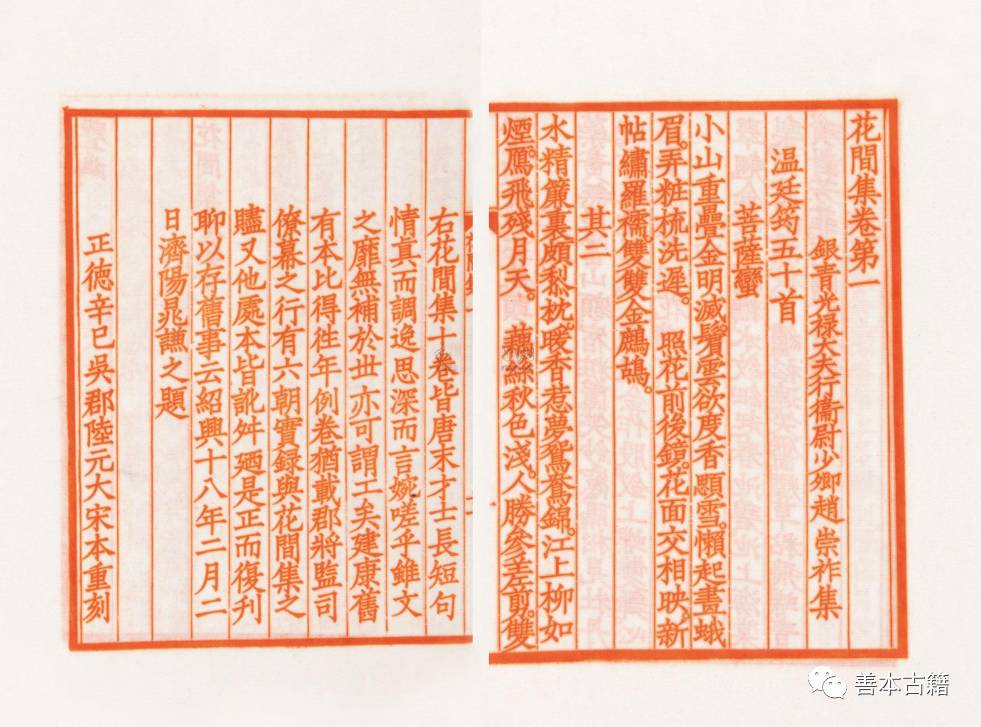 花間集卷第一
銀青光祿大夫行衞尉少卿趙崇祚集
温廷筠五十首
菩薩蠻
小山重疊金明滅鬢雲欲度香顋雪。懶起畫蛾
眉。弄粧梳洗遲。照花前後鏡。花面交相映。新
帖繡羅襦。雙雙金鷓鴣。
其二
水精簾裏頗黎枕。暖香惹夢鴛鴦錦。江上柳如
煙。鴈飛殘月天。藕絲秋色淺。人勝參差剪。雙
右花間集十卷皆唐末才士長短句
情真而調逸思深而言婉嗟乎雖文
之靡無補於丗亦可謂工矣建康舊
有本比得徃年例卷猶載郡將監司
僚幕之行有六朝實録與花間集之
贐又他處本皆訛舛廼是正而復刋
聊以存舊事云紹興十八年二月二
日濟陽晁謙之題
正德辛巳吳郡陸元大宋本重刻
善本古籍